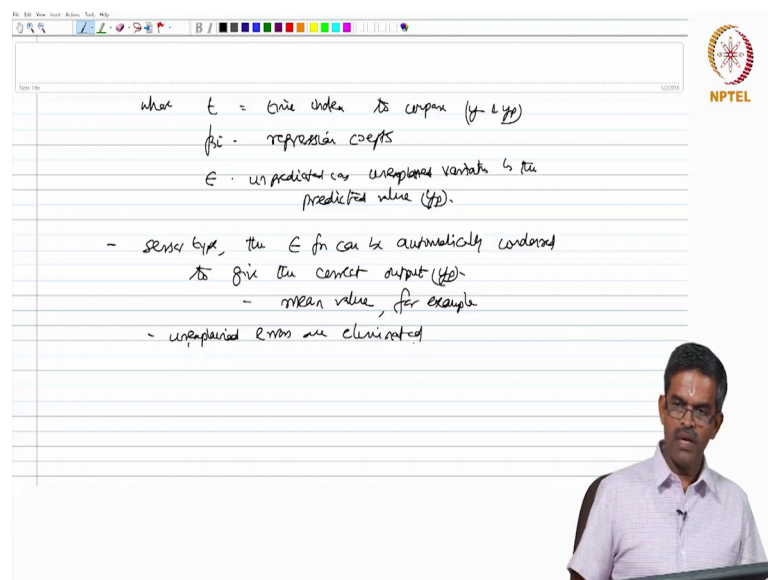 File Edit View Insert Actions Tools Help
B I
Note Title
5/2/2018
NPTEL
where t = time chosen to compare (y & yp)
βi - regression coeffs
ϵ - unpredicted (as) unexplained variation in the
predicted value (yp).
- sensor type, the ϵ fn can be automatically condensed
to give the correct output (yp)-
- mean value, for example
- unexplained errors are eliminated